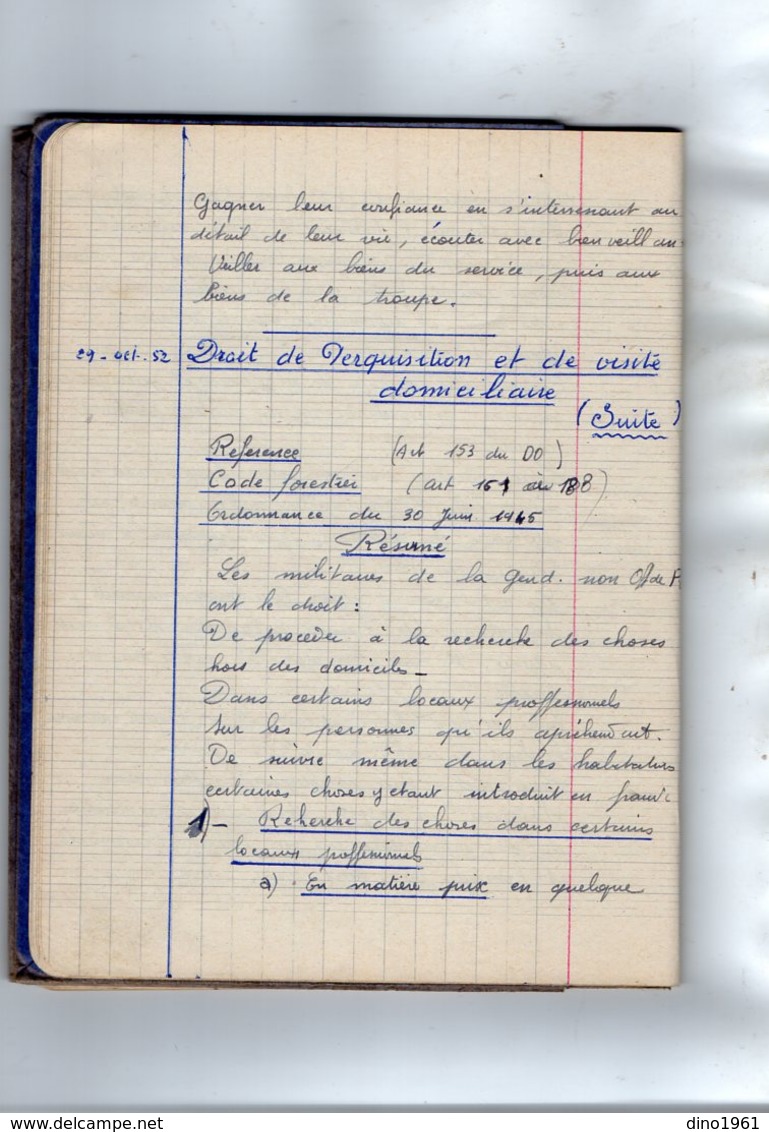 Gagner leur confiance en s'interressant au
détail de leur vie, écouter avec bienveillan
Veiller aux biens du service, puis aux
biens de la troupe.
29-oct-52 Droit de Perquisition et de visite
domiciliaire
(Suite)
Reference (Art 153 du DO)
Code forestier (art 161 au 188)
Ordonnance du 30 Juin 1945
Résumé
Les militaires de la Gend. non Off de P.
ont le droit :
De proceder à la recherche des choses
hors des domiciles -
Dans certains locaux proffessionnels
Sur les personnes qu'ils apréhendent.
De suivre même dans les habitations
certaines choses y etant introduit en
1)- Reherche des choses dans certains
locaux proffessionnels
a) En matière prix en quelque
delcampe.net
dino1961